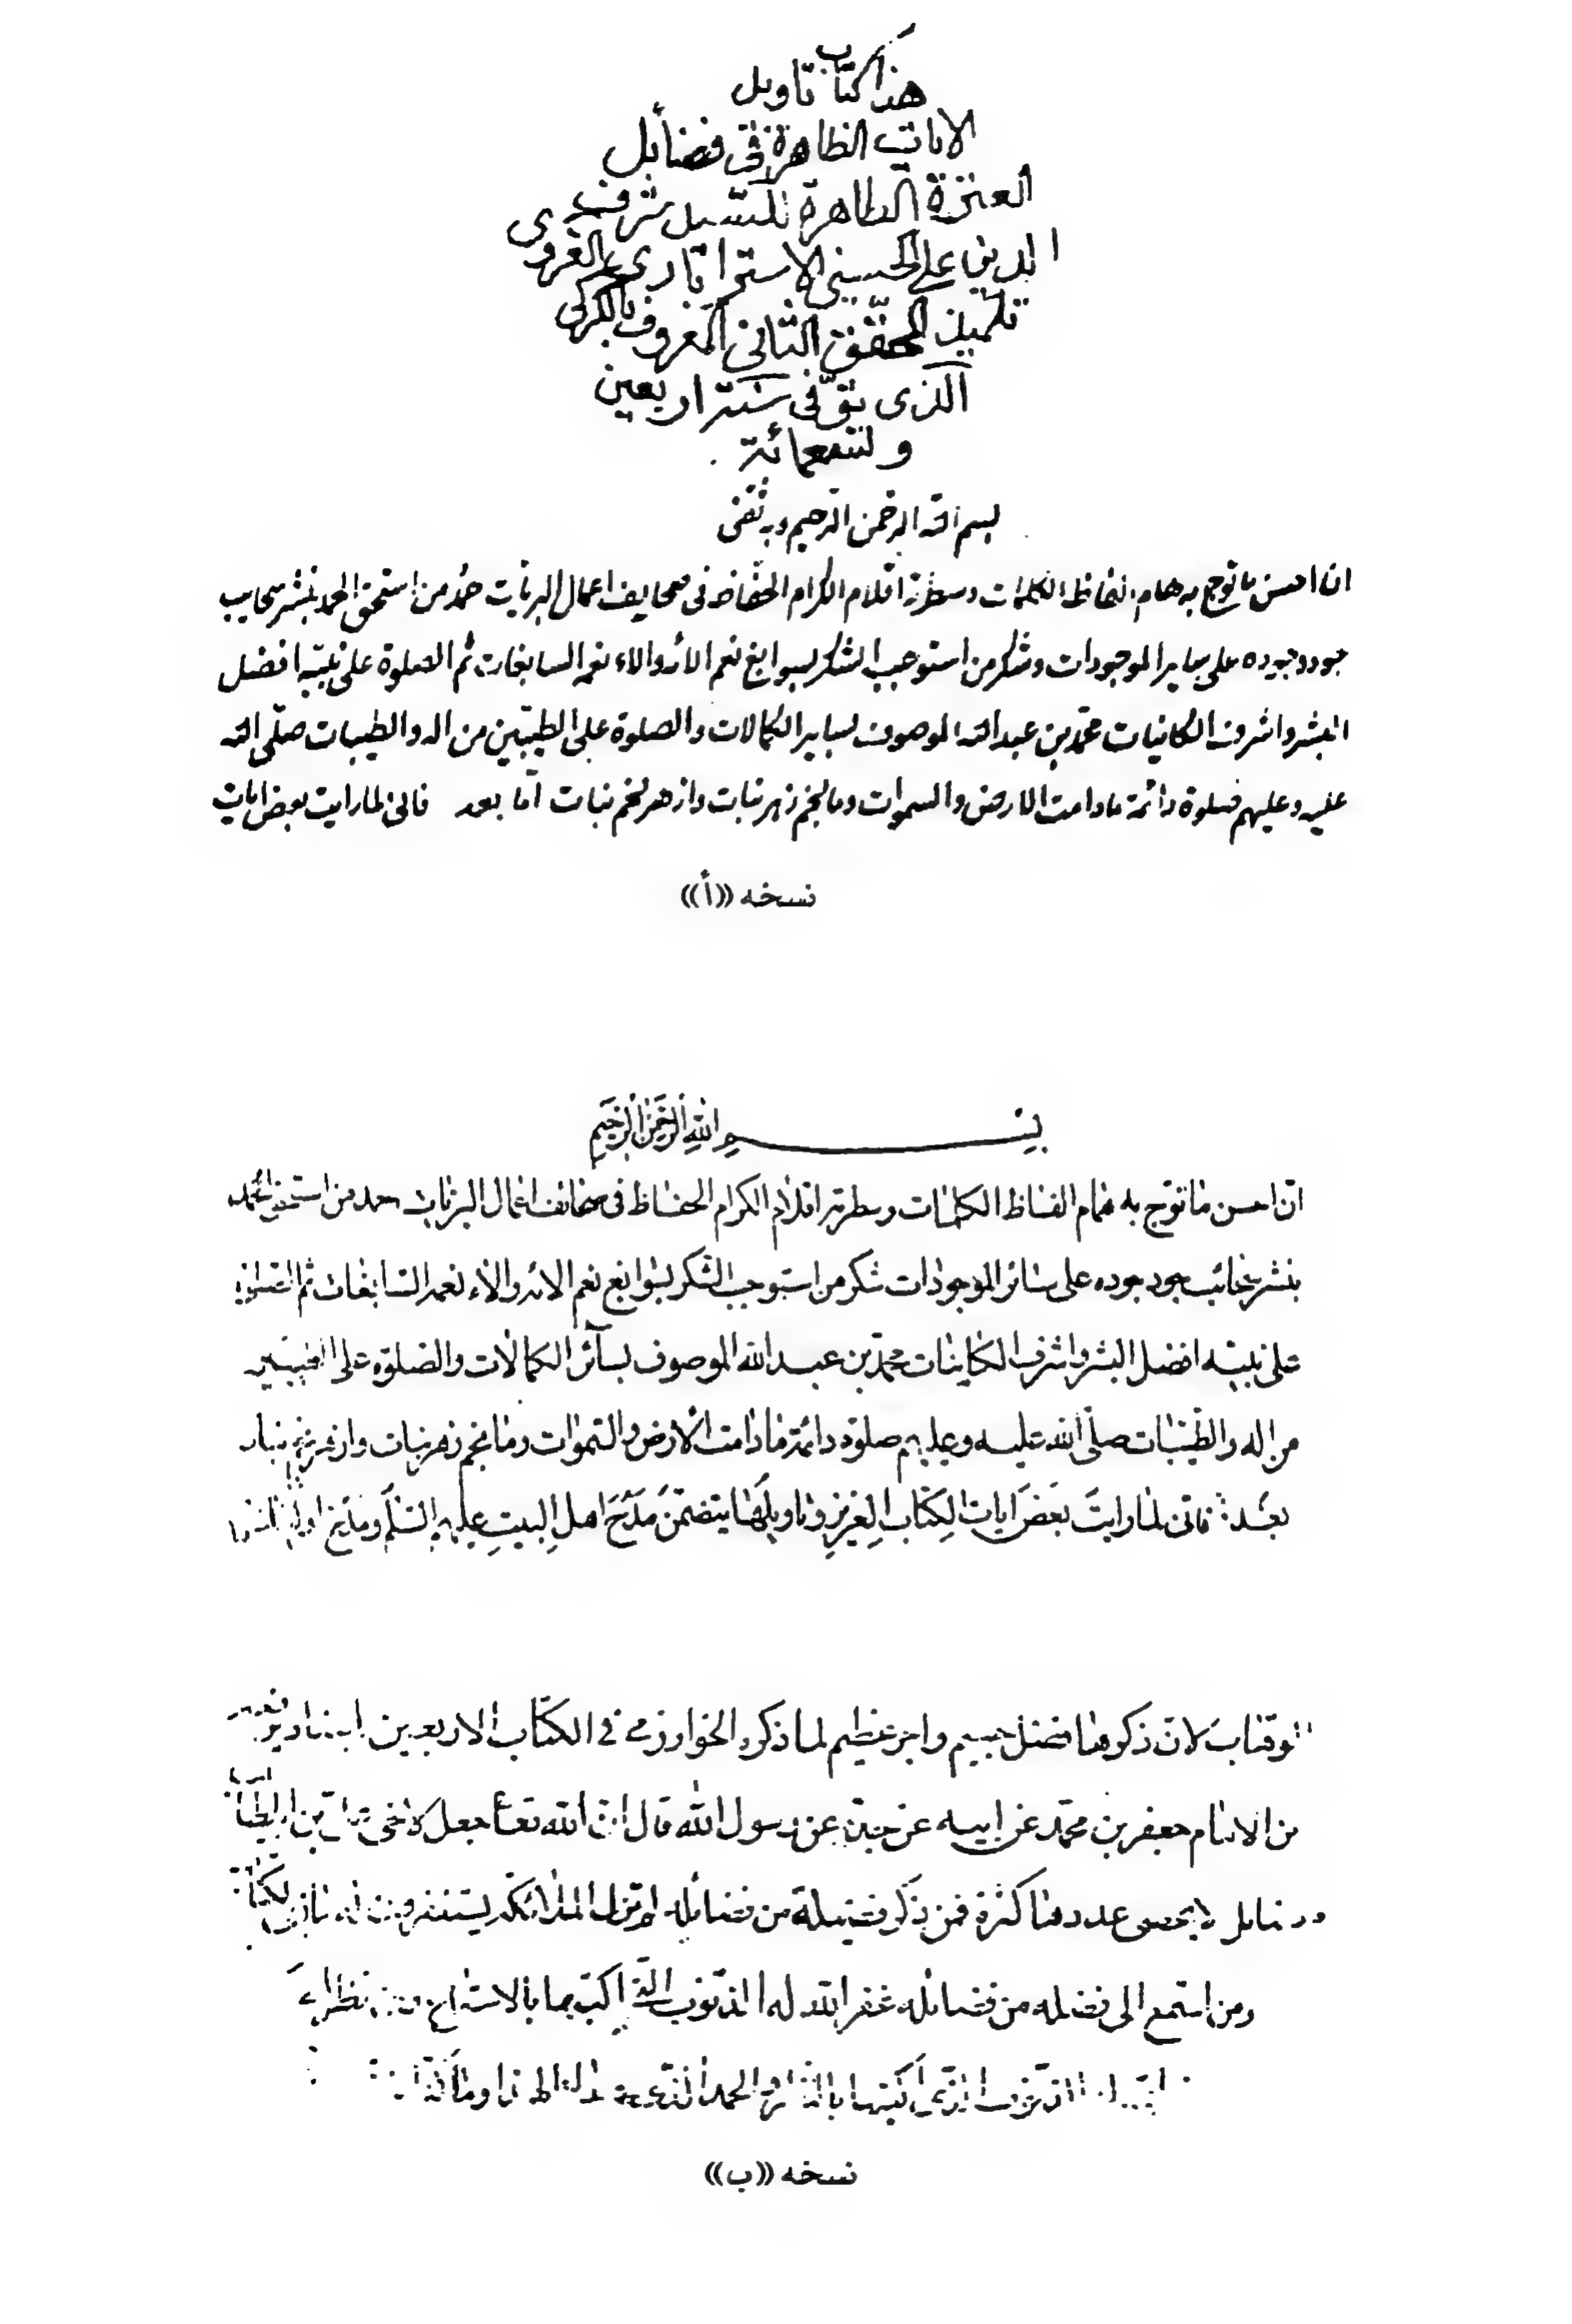 هذا كتاب تاويل
الايات الظاهرة في فضائل
العترة الطاهرة للسيد شرف
الدين علي الحسيني الاسترابادي الغروي
تلميذ المحقق الثاني المعروف بالكركي
الذي توفى سنة اربعين
و تسعمائة
بسم الله الرحمن الرحيم وبه ثقتى
ان احسن ما توج به هام الفاظ الكلمات وسطرته اقلام الكرام الحفاظ فى صحايف اعمال البريات حمد من استحق الحمد بنشر سحايب
جود وجوده على ساير الموجودات وشكر من استوجب الشكر لسوابغ نعم الائه والاء نعمه السابغات ثم الصلوة على نبيه افضل
البشر واشرف الكائنيات محمد بن عبد الله الموصوف بساير الكمالات والصلوة على الطيبين من اله والطيبات صلى الله
عليه وعليهم صلوة دائمة ما دامت الارض والسموات وما نجم زهر نبات وازهر نجم نبات اما بعد فانى لما رايت بعض ايات
نسخه «أ»
بسم الله الرحمن الرحيم
ان احسن ما توج به هام الفاظ الكلمات وسطرته اقلام الكرام الحفاظ فى صحائف اعمال البريات حمد من استحق الحمد
بنشر سحائب جود جوده على سائر الموجودات شكر من استوجب الشكر لسوابغ نعم الائه والاء نعمه السابغات ثم الصلوة
على نبيه افضل البشر واشرف الكاينات محمد بن عبد الله الموصوف بسائر الكمالات والصلوة على الطيبين
من اله والطيبات صلى الله عليه وعليهم صلوة دائمة ما دامت الارض والسموات وما نجم زهر نبات وازهر نجم نبات
بعد فانى لما رايت بعض ايات الكتاب العزيز وتاويلها يتضمن مدح اهل البيت عليهم السلم ومدح
لان ذكرها فضل جسيم واجر عظيم لما ذكره الخوارزمي في الكتاب الاربعين
من الامام جعفر بن محمد عن ابيه عن جده عن رسول الله قال ان الله تعا جعل لاخى بن ابيطالب
فضايل لا يحصى عددها كثرة فمن ذكر فضيلة من فضائله لم تزل الملائكة يستغفرون
ومن استمع الى فضيلة من فضائله غفر الله له الذنوب التي اكتسبها بالاستماع ومن نظر
الذنوب التي اكتسبها بالنظر والحمد
نسخه «ب»